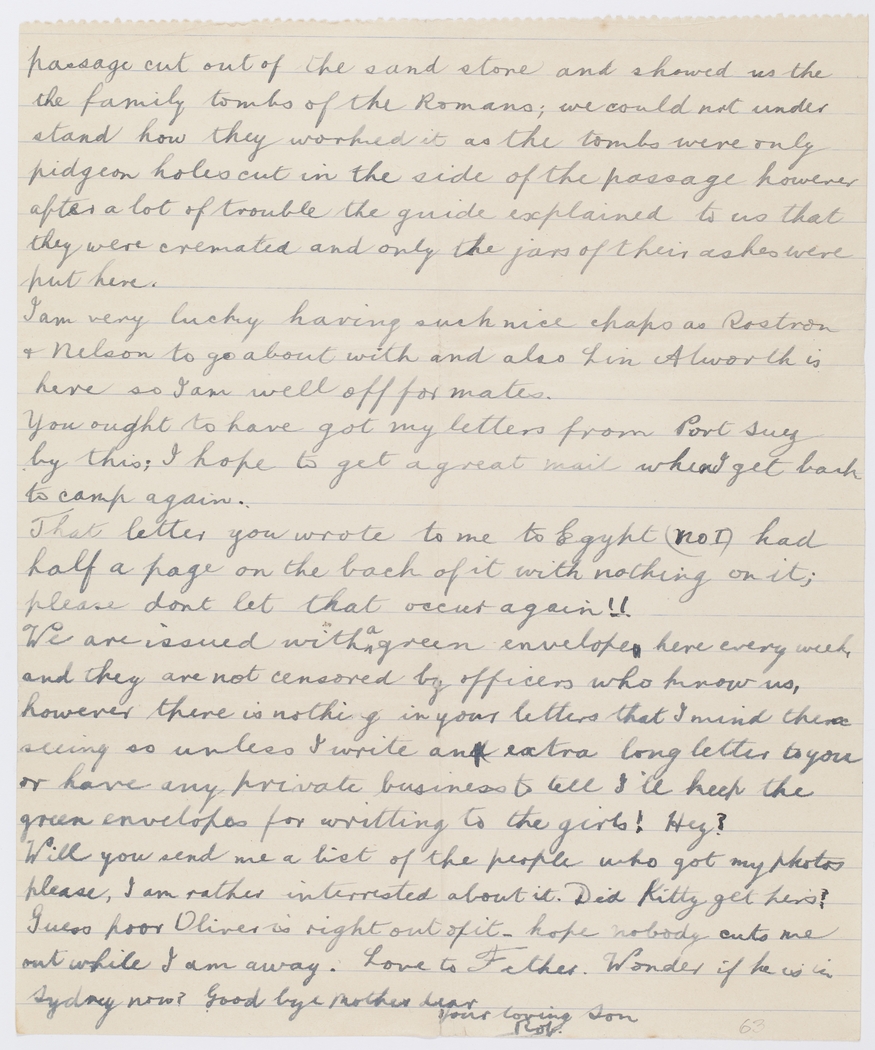 passage cut out of the sand stone and showed us the
the family tombs of the Romans; we could not under
stand how they worked it as the tombs were only
pidgeon holes cut in the side of the passage however
after a lot of trouble the guide explained to us that
they were cremated and only the jars of their ashes were
put here.
I am very lucky having such nice chaps as Rostron
+ Nelson to go about with and also Lin Alworth is
here so I am well off for mates.
You ought to have got my letters from Port Suez
by this; I hope to get a great mail when I get back
to camp again.
That letter you wrote to me to Egypt (No I) had
half a page on the back of it with nothing on it;
please dont let that occur again!!
We are issued with a green envelope, here every week,
and they are not censored by officers who know us,
however there is nothi g in your letters that I mind them
seeing so unless I write an extra long letter to you
or have any private business to tell I'll keep the
green envelopes for writting to the girls! Hey?
Will you send me a list of the people who got my photos
please, I am rather interrested about it. Did Kitty get hers?
Guess poor Oliver is right out of it - hope nobody cuts me
out while I am away. Love to Father. Wonder if he is in
Sydney now? Good bye Mother dear
Your loving Son
Rob.
63